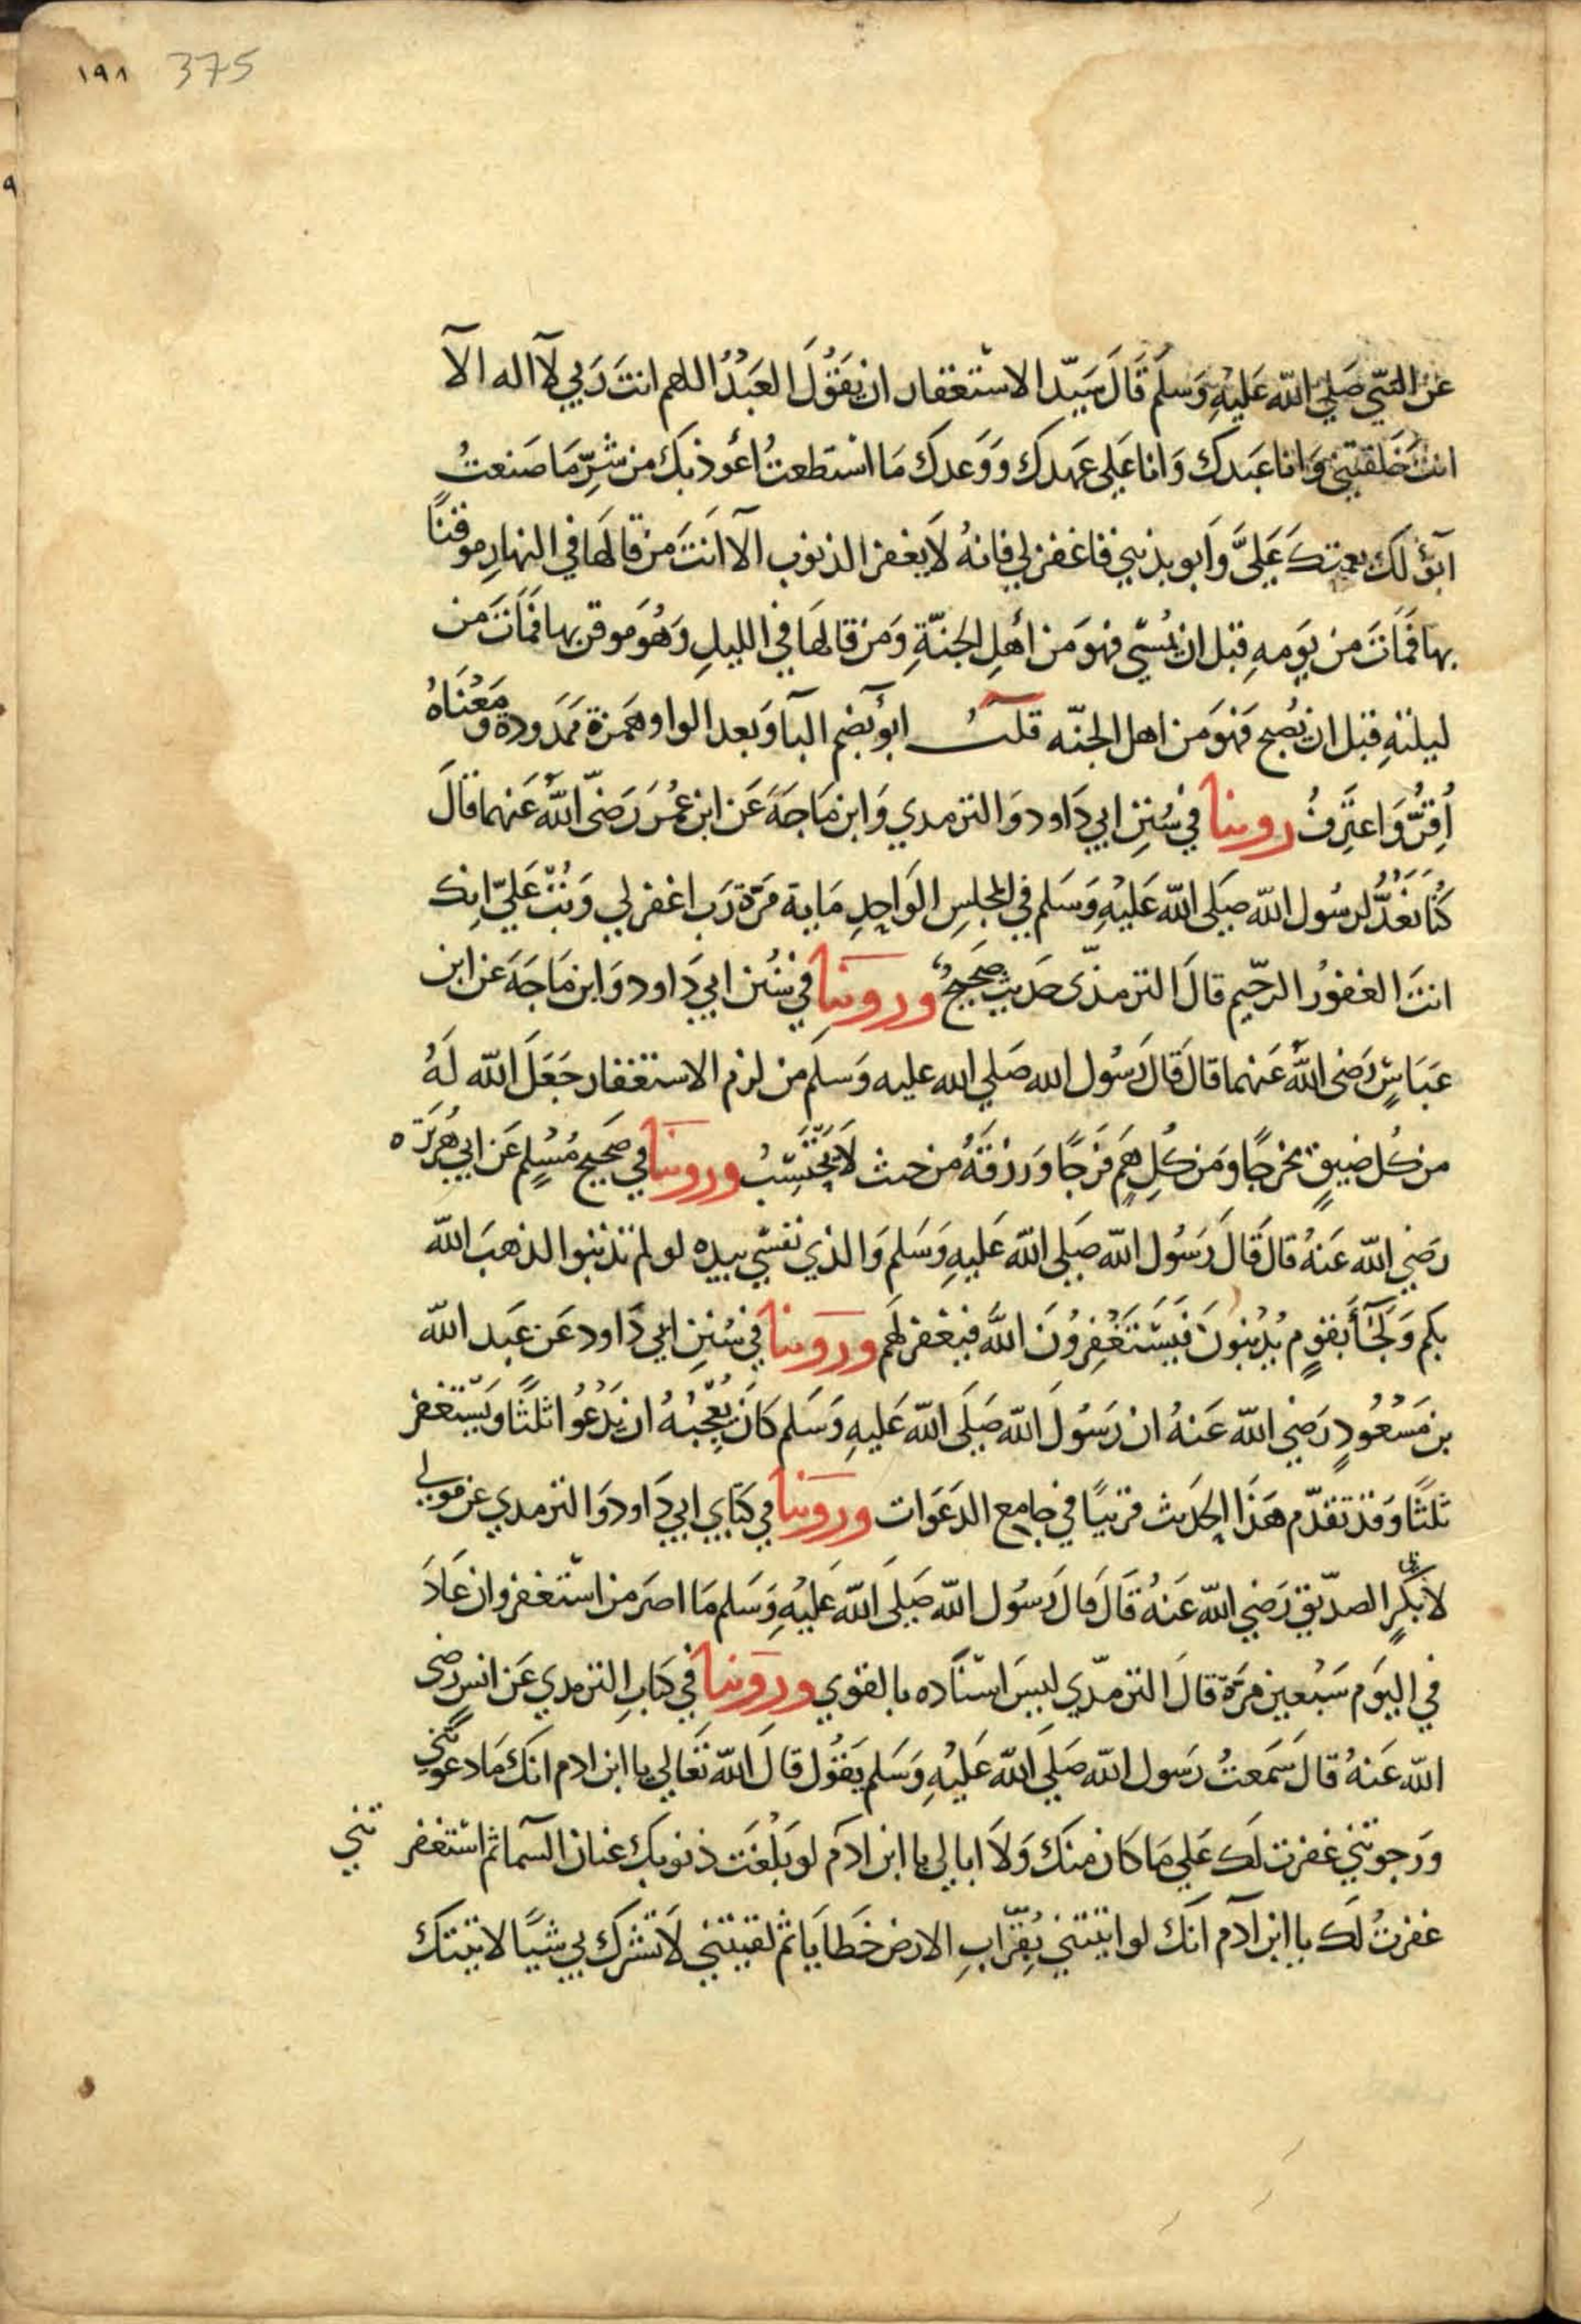 ١٩٨ 375
عن النبي صَلي الله عَليْهِ وَسلم قَالَ سَيّد الاستغفار ان يَقُولَ العَبْدُ اللهم انتَ رَبي لآ اله الآ
انت خَلقتني وَانا عَبدك وَانا عَلى عَهدك وَوَعدك مَا اسْتطعتُ أعُوذ بك من شرِّ مَا صَنعتُ
ابوُء لَك بنعمتك عَليَّ وَابو بذنبي فاغفر لي فانهُ لَا يغفر الذنوب الآ انَتَ من قالهَا في النهارِ موقنًا
بها فمَاتَ من يَومهِ قبل ان يُمسّي فهوَ مَن أهلِ الجنّةِ وَمَن قالهَا في الليلِ وَهُوَ موقن بها فمَاتَ من
ليلتهِ قبل ان يُصبح فَهوَ مَن اهل الجنّه قلتُ ابوُء بضم البآ وَبعد الواو همَزة ممَدودة وَمَعْناهُ
أُقِرُّ وَاعتَرِفُ روينا في سُنَنِ ابي دَاود وَالترمدي وَابن مَاجَةَ عَن ابن عمُرَ رَضىّ اللهُ عَنهما قالَ
كُنا نَعُدُّ لرسُول الله صَلى الله عَليْهِ وَسَلم في المجلسِ الوَاحِدِ مَاية مَرّة رَب اغفر لي وَتُبْ عَليّ انك
انتَ الغفوُر الرحّيم قالَ الترمذّى حَديث صَحِيحٌ وروَينِا في سُنن ابي دَاود وَابن مَاجَة عن ابن
عَبَاسٍ رَضى اللهُ عَنهما قالَ قَالَ رَسُول الله صَلي الله عليه وَسلم من لزم الاستغفار جَعَلَ الله لَهُ
من كُل ضيقٍ مخرجًا وَمَن كُلِ همٍ فَرَجًا وَرزقَهُ من حيث لَا يَحْتَسِبُ وروينَا في صَحيحِ مُسْلمِ عَن ابي هُرَيْرَه
رَضي الله عَنهُ قالَ قَالَ رَسُول الله صَلى الله عَليهِ وَسَلم وَالذي نفسّي بيده لو لم تذنبوا لذهبَ الله
بكم وَلَجَآءَ بقومٍ يُذْنِبُونَ فَيَسْتَغْفِرُونَ اللهَ فيغفر لهَم وروَينا في سُنَنِ ابي دَاود عَن عَبد الله
بن مَسْعُودٍ رَضي الله عَنهُ ان رَسُولَ الله صَلَى الله عَليهِ وَسَلم كَانَ يُعْجِبُهُ ان يَدْعُوُا ثلَثًا وَيَسْتغفر
ثلثًا وَقد تقدّم هَذا الحَديث قريبًا في جامع الدَعَوَات وروَينا في كتَابي ابي دَاود وَالترمدي عن مولي
لابي بكرٍ الصدّيق رَضي الله عَنهُ قَالَ قال رَسُول الله صَلَى الله عَليْهِ وَسَلم مَا اصَر من اسْتغفر وان عَادَ
في اليَوم سَبْعين مَرّة قالَ الترمّدي ليسَ اسْنَاده بالقوي وروَينا في كتابِ الترمدي عَن انسٍ رضى
الله عَنهُ قالَ سَمعتُ رَسول الله صَلي الله عَليْهِ وَسَلم يَقوُل قالَ الله تَعالي يا ابن ادم انك مَا دعوتني
وَرَجوتني غفرت لَك عَلي مَا كَان منك وَلَا ابالي يا ابن ادَم لو بَلْغَت ذنوبك عنان السّما ثم اسْتغفر تني
غفرتُ لَك يا ابن آدم انّك لو اتيتني بِقُرابِ الارض خَطاَيا ثم لقيتني لَا تشرك بي شيئًا لاتيتك